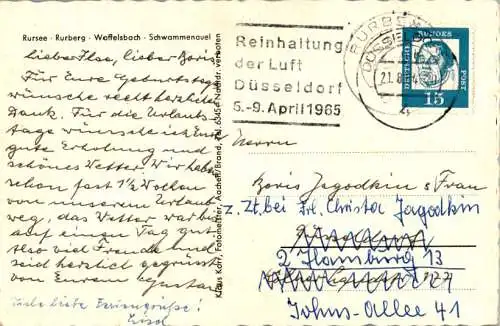 Rursee - Rurberg - Woffelsbach - Schwammenauel
Lieber Ilse, lieber Boris
Für Eure Geburtstags-
wünsche recht herzlichen
Dank. Für die Urlaubs-
tage wünsche ich Euch
gute Erholung und
schönes Wetter. Wir haben
schon fast 1 1/2 Wochen
von unserem Urlaub
weg, das Wetter war bis
auf einen Tag gut.
Also viel Freude und
seid herzlich gegrüsst
von Eurem Gustav
Viele liebe Feriengrüße!
Klaus Korr, Fotomeister, Aachen/Brand, Nachdr. verboten
Reinhaltung
der Luft
Düsseldorf
5.-9. April 1965
DÜSSELDORF
DEUTSCHE BUNDESPOST
15
Herrn
Boris Jagodkin u Frau
z. Zt. bei Fr. Christa Jagodkin
2 Hamburg 13
Johns-Allee 41